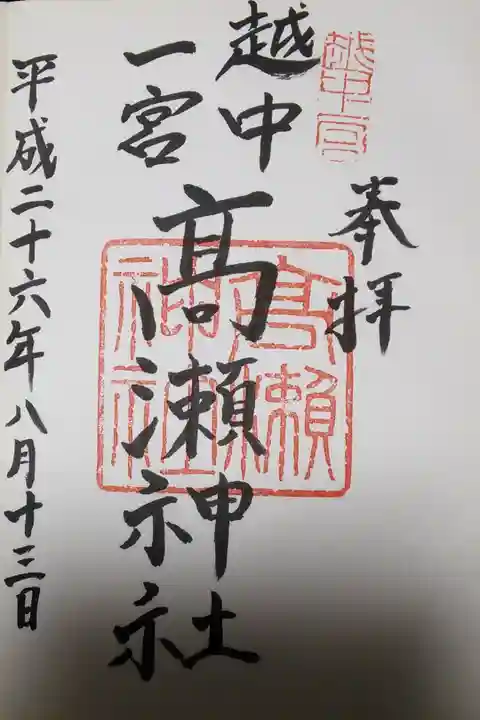 奉拝
越中
一宮
高瀬神社
平成二十六年八月十三日
越中一宮
高瀬
神社